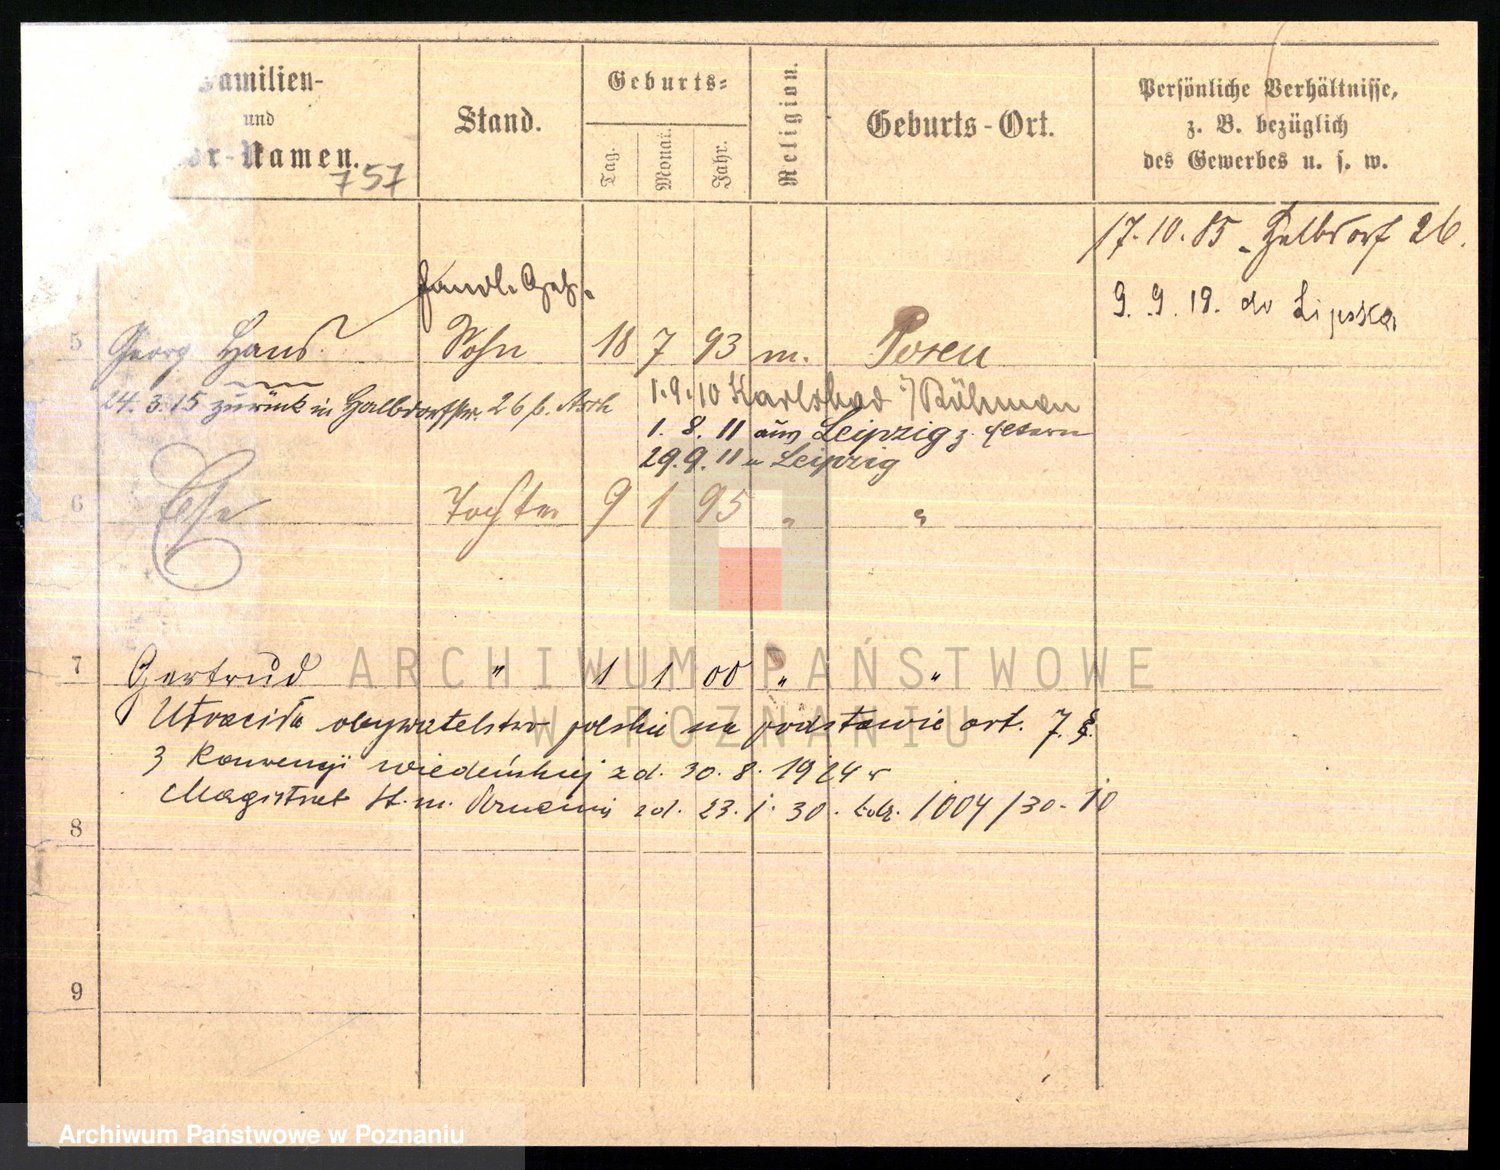 Familien-
und
Vor-Namen.
757
Stand.
Geburts-
Tag.
Monat.
Jahr.
Religion.
Geburts-Ort.
Persönliche Verhältnisse,
z. B. bezüglich
des Gewerbes u. s. w.
17.10.85 - Halbdorf 26.
9. 9. 19. do Lipska
Handl. Geh.
5 Georg Hans Sohn 18 7 93 m. Posen
24. 3. 15 zurück in Halbdorfstr. 26 b.
1. 9. 10 Karlsbad i/Böhmen
1. 8. 11 aus Leipzig z. Eltern
29. 9. 11 n Leipzig
6 Else Tochter 9 1 95 " "
7 Gertrud " 1 1 00 " "
Utraciła obywatelstwo polskie na podstawie art. 7. §.
3 Konwencji wiedeńskiej z d. 30. 8. 1924 r
Magistrat st. m. Poznania z d. 23. 1. 30. 1004/30-
8
9
ARCHIWUM PAŃSTWOWE
W POZNANIU
Archiwum Państwowe w Poznaniu